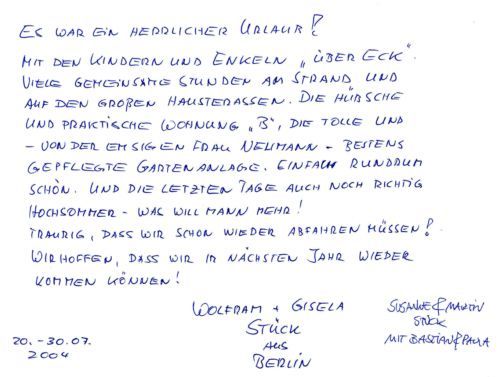 ES WAR EIN HERRLICHER URLAUB!
MIT DEN KINDERN UND ENKELN „ÜBER ECK".
VIELE GEMEINSAME STUNDEN AM STRAND UND
AUF DEN GROßEN HAUSTERASSEN. DIE HÜBSCHE
UND PRAKTISCHE WOHNUNG „B", DIE TOLLE UND
- VON DER EMSIGEN FRAU NEUMANN - BESTENS
GEPFLEGTE GARTENANLAGE. EINFACH RUNDRUM
SCHÖN. UND DIE LETZTEN TAGE AUCH NOCH RICHTIG
HOCHSOMMER - WAS WILL MANN MEHR!
TRAURIG, DASS WIR SCHON WIEDER ABFAHREN MÜSSEN!
WIR HOFFEN, DASS WIR IM NÄCHSTEN JAHR WIEDER
KOMMEN KÖNNEN!
WOLFRAM + GISELA
STÜCK
AUS
BERLIN
SUSANNE & MARTIN
STÜCK
MIT BASTIAN & PAULA
20. - 30.07.
2004